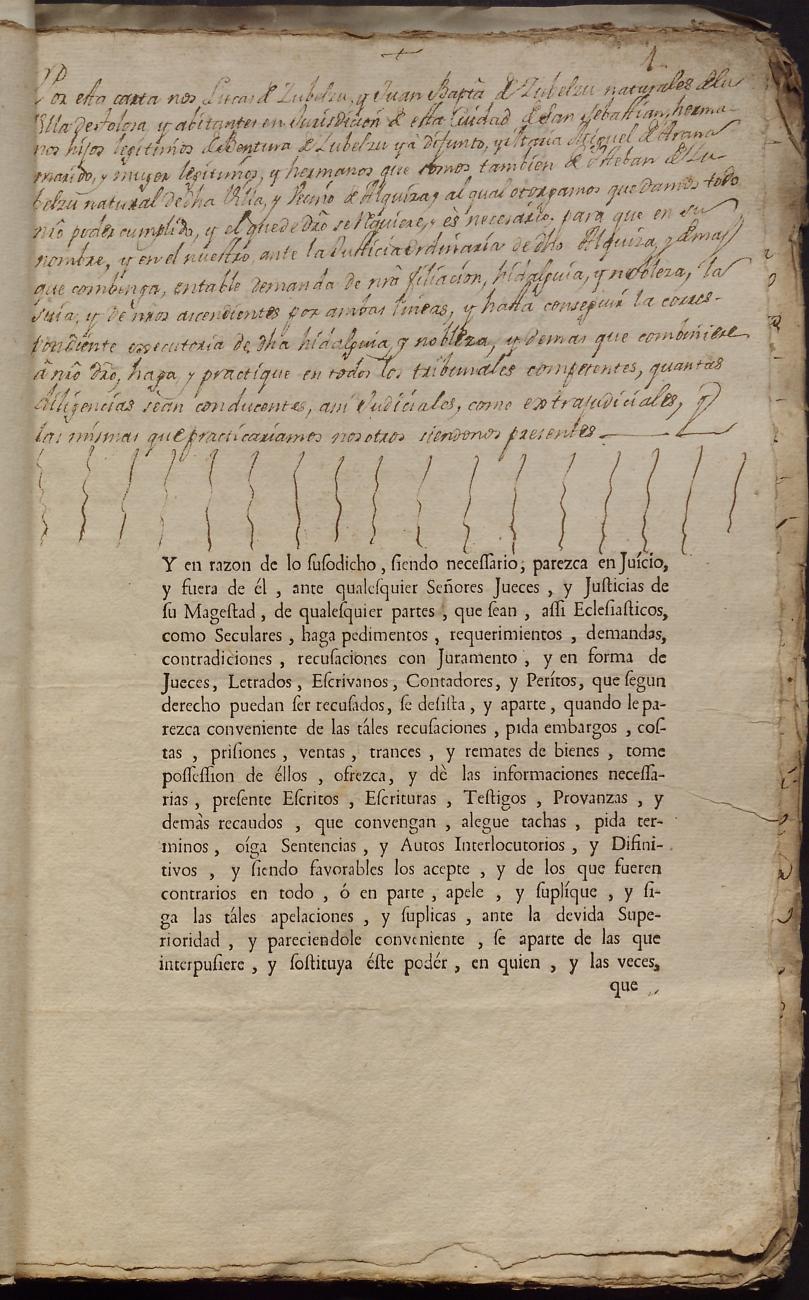 1
Por esta carta nos Lucas de Zubelzu, y Juan Bapta de Zubelzu naturales de la
Villa de tolosa, y abitantes en Jurisdicion de esta Ciudad de San sebastian, herma-
nos hijos legitimos de Bentura de Zubelzu ya difunto, y Maria Miguel de Arana
marido, y mujer legitimos, y hermanos que somos tambien de Esteban de Zu-
belzu natural de dha Villa, y Vecino de Alquiza, al qual otorgamos que damos todo
nro poder cumplido, y el que de dro se requiere, y ès necesario, para que en su
nombre, y en el nuestro, ante la Justicia ordinaria de dho Alquiza, y demas
que combenga, entable demanda de nra filiacion, hidalguia, y nobleza, la
suia, y de nros ascendientes por ambas lineas, y hasta conseguir la corres-
pondiente executoria de dha hidalguia, y nobleza, y demas que combiniere
à nro dro, haga, y practique en todos los tribunales competentes, quantas
diligencias sean conducentes, asi Judiciales, como extrajudiciales, y
las mismas que practicariamos nosotros siendonos presentes
Y en razon de lo ſuſodicho, ſiendo neceſſario, parezca en Juício,
y fuera de él, ante qualeſquier Señores Jueces, y Juſticias de
ſu Mageſtad, de qualeſquier partes, que ſean, aſſi Ecleſiaſticos,
como Seculares, haga pedimentos, requerimientos, demandas,
contradiciones, recuſaciones con Juramento, y en forma de
Jueces, Letrados, Eſcrívanos, Contadores, y Perítos, que ſegun
derecho puedan ſer recuſados, ſe deſiſta, y aparte, quando le pa-
rezca conveniente de las táles recuſaciones, pida embargos, coſ-
tas, priſiones, ventas, trances, y remates de bienes, tome
poſſeſſion de éllos, ofrezca, y dè las informaciones neceſſa-
rias, preſente Eſcritos, Eſcrituras, Teſtigos, Provanzas, y
demàs recaudos, que convengan, alegue tachas, pida ter-
minos, oíga Sentencias, y Autos Interlocutorios, y Difini-
tivos, y ſiendo favorables los acepte, y de los que fueren
contrarios en todo, ó en parte, apele, y ſuplíque, y ſi-
ga las táles apelaciones, y ſuplicas, ante la devida Supe-
rioridad, y pareciendole conveniente, ſe aparte de las que
interpuſiere, y ſoſtituya éſte podér, en quien, y las veces,
que